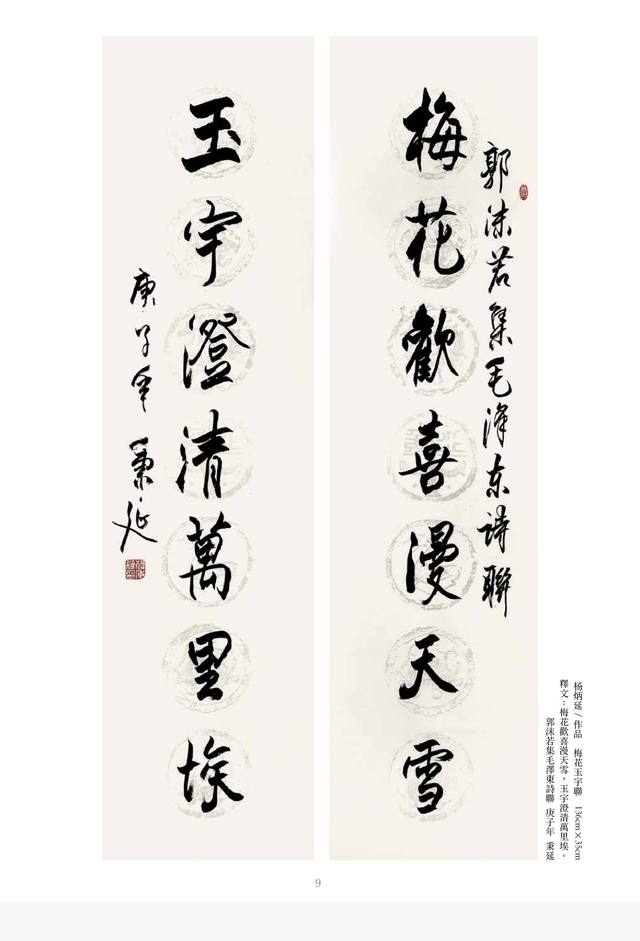 郭沫若集毛泽东诗联
梅花歡喜漫天雪
玉宇澄清萬里埃
庚子年 秉延
杨炳延/作品 梅花玉宇聯 136cm×35cm
釋文：梅花歡喜漫天雪，玉宇澄清萬里埃。
郭沫若集毛澤東詩聯 庚子年 秉延
9